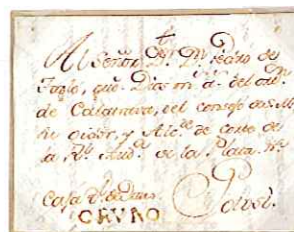 Al Señor Dn. Pedro de
Tagle, que Dios m. a. del orn.
de Calatrava, del consejo de S. M.
su oidor, y Alc.de de corte de
la Rl. Aud.a de la Plata. m.
Casa
Potosi.
ORURO